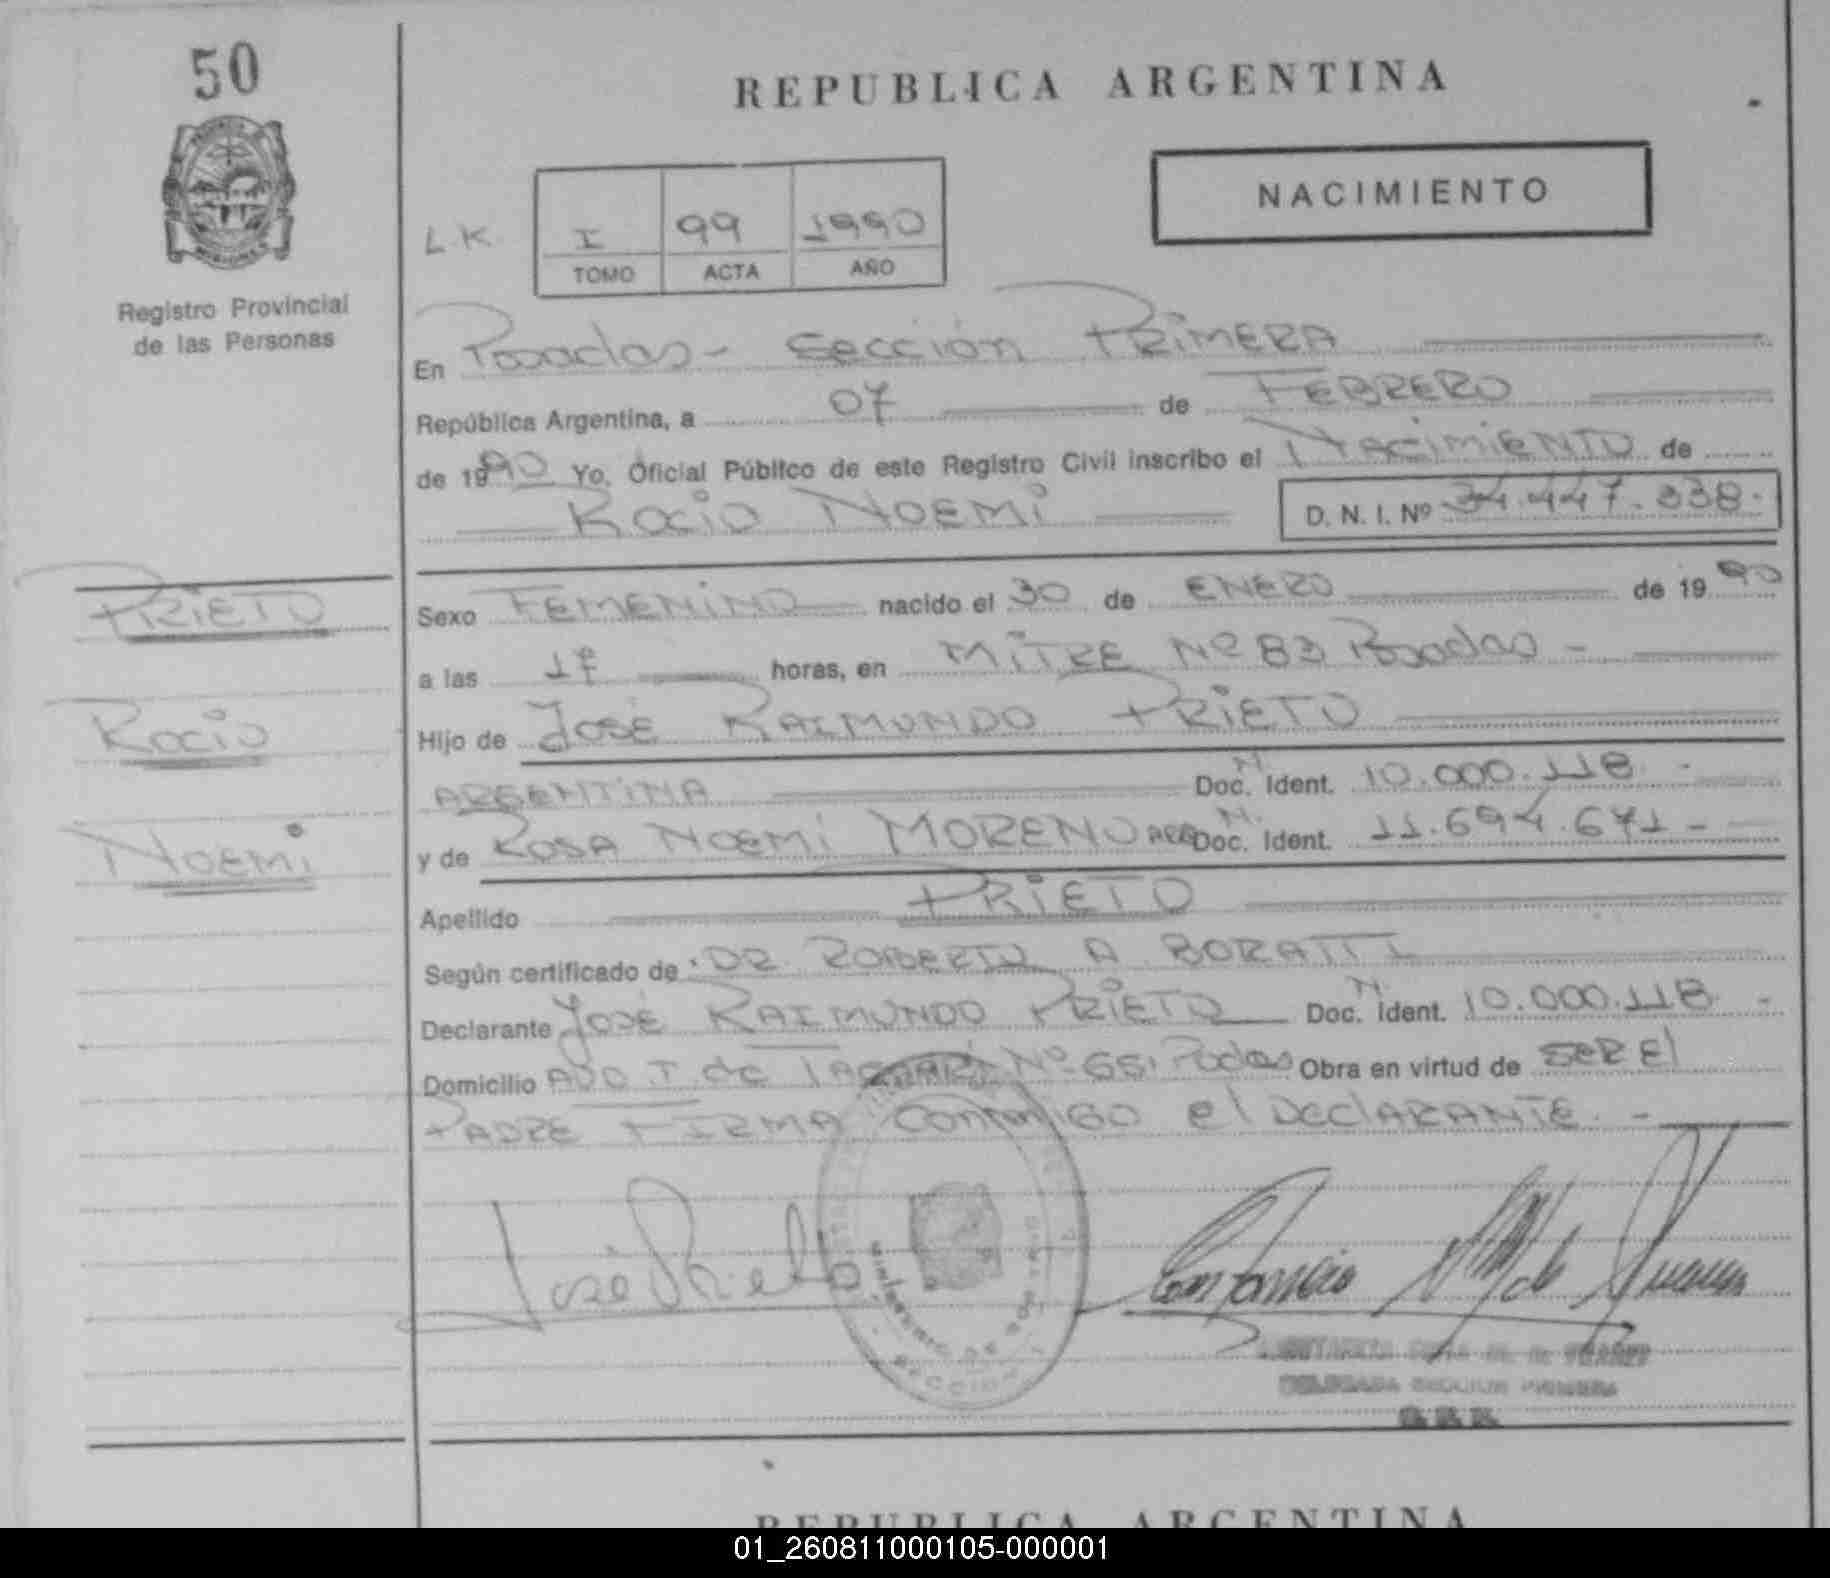 50
REPUBLICA ARGENTINA
NACIMIENTO
L.K. I 99 1990
TOMO ACTA AÑO
Registro Provincial
de las Personas
En Posadas - Sección PRIMERA
República Argentina, a 07 de FEBRERO
de 1990 Yo, Oficial Público de este Registro Civil inscribo el NACIMIENTO de
ROCIO NOEMI D. N. I. Nº 34.447.338.
PRIETO
Rocio
NOEMI
Sexo FEMENINO nacido el 30 de ENERO de 1990
a las 17 horas, en MITRE Nº 83 Posadas -
Hijo de JOSÉ RAIMUNDO PRIETO
ARGENTINA Doc. N. Ident. 10.000.118 -
y de ROSA NOEMI MORENO ARG Doc. N. Ident. 11.694.671 -
Apellido PRIETO
Según certificado de DR ROBERTO A BORATTI
Declarante JOSÉ RAIMUNDO PRIETO Doc. N. Ident. 10.000.118 -
Domicilio T. de Nº 661 Obra en virtud de SER El
PADRE FIRMA CONMIGO el DEClARANTE. -
José Prieto
MINISTERIO DE
SECCION
DELEGADA SECCION PRIMERA
REPUBLICA ARGENTINA
01_260811000105-000001